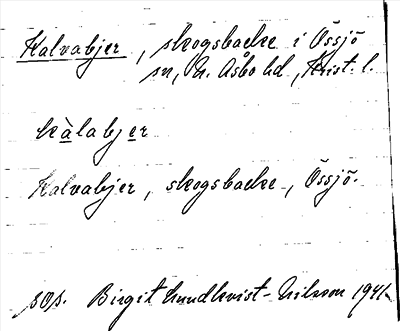 Kalvabjer, skogsbacke i Össjö
sn, N. Åsbo hd, Krist. l.
kàlabjer
Kalvabjer, skogsbacke, Össjö.
sOs. Birgit Lundkvist-Nilsson 1941